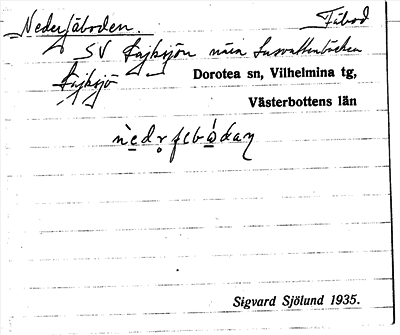 Nederfäboden. Fäbod
SV Kajksjön nära Lusvattenbäcken
Kajksjö Dorotea sn, Vilhelmina tg,
Västerbottens län
Sigvard Sjölund 1935.